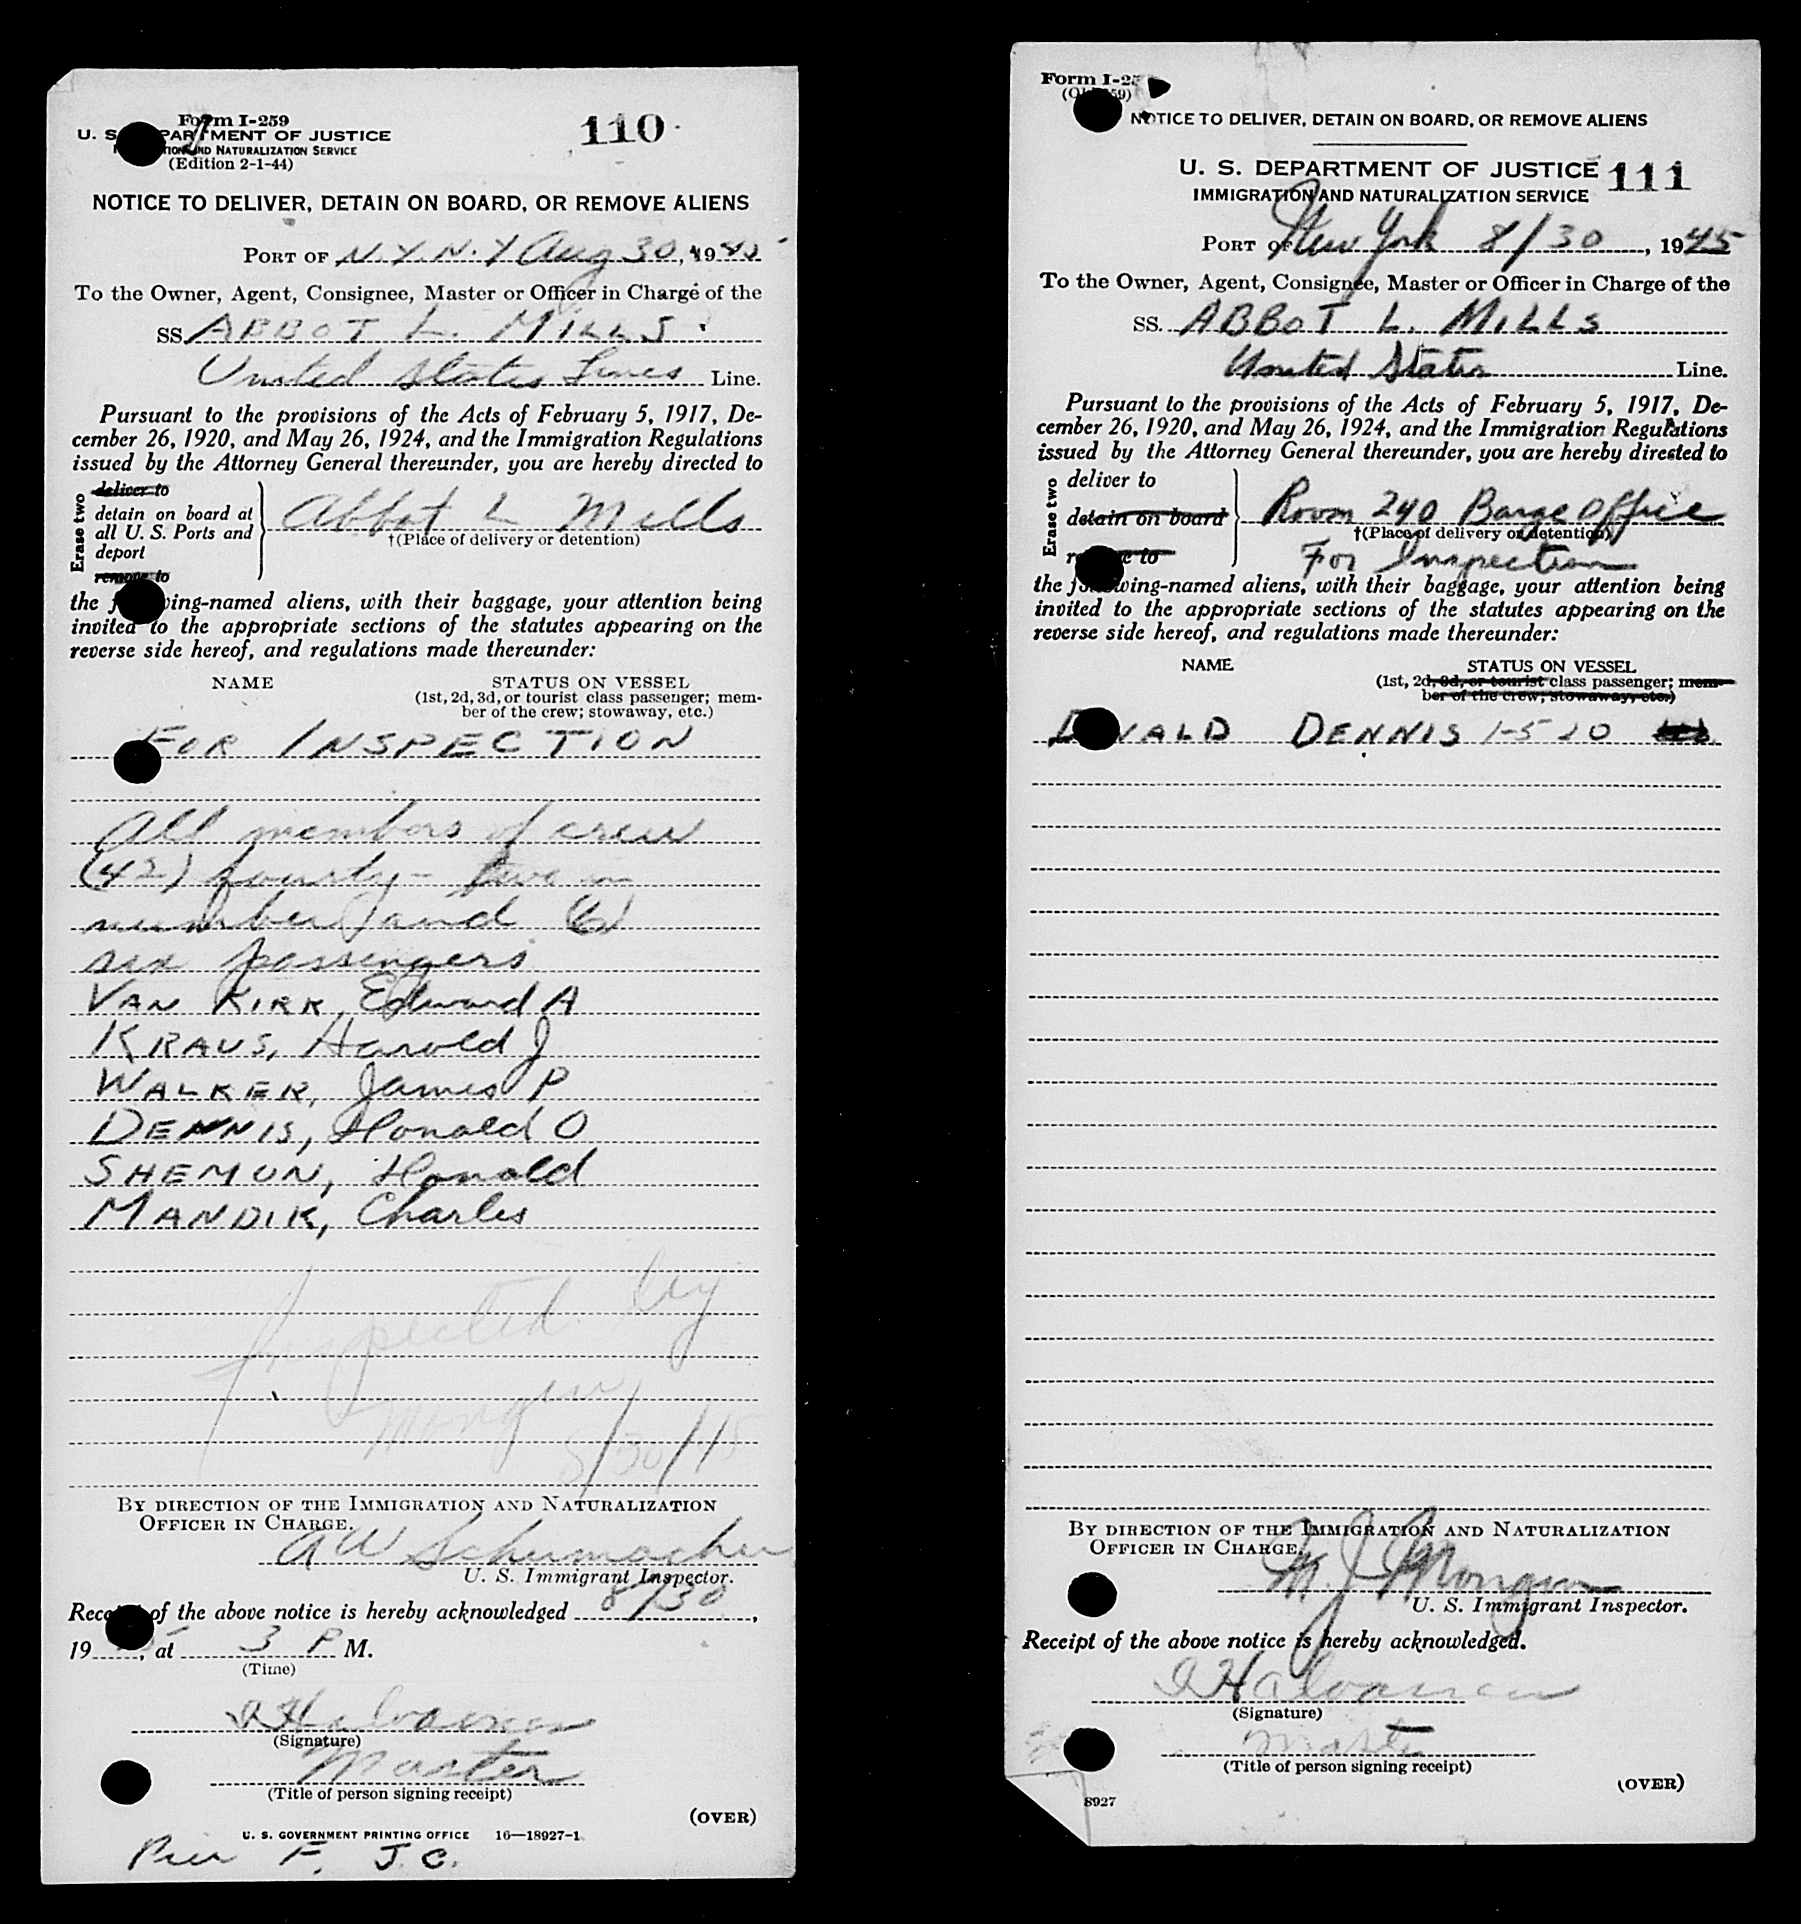 Form I-259
U. S. DEPARTMENT OF JUSTICE
IMMIGRATION AND NATURALIZATION SERVICE
(Edition 2-1-44)
110
NOTICE TO DELIVER, DETAIN ON BOARD, OR REMOVE ALIENS
PORT OF N.Y.N.Y Aug 30, 1945
To the Owner, Agent, Consignee, Master or Officer in Charge of the
SS ABBOT L. MILLS
United States Lines Line.
Pursuant to the provisions of the Acts of February 5, 1917, De-
cember 26, 1920, and May 26, 1924, and the Immigration Regulations
issued by the Attorney General thereunder, you are hereby directed to
Erase two
deliver to
detain on board at
all U. S. Ports and
deport
remove to
Abbot L Mills
†(Place of delivery or detention)
the following-named aliens, with their baggage, your attention being
invited to the appropriate sections of the statutes appearing on the
reverse side hereof, and regulations made thereunder:
NAME STATUS ON VESSEL
(1st, 2d, 3d, or tourist class passenger; mem-
ber of the crew; stowaway, etc.)
FOR INSPECTION
All members of crew
(42) fourty-two in
number and (6)
six passengers
VAN KIRK, Edward A
KRAUS, Harold J
WALKER, James P
DENNIS, Donald O
SHEMON, Donald
MANDIK, Charles
Inspected by
8/30/45
BY DIRECTION OF THE IMMIGRATION AND NATURALIZATION
OFFICER IN CHARGE.
A W Schumacher
U. S. Immigrant Inspector.
Receipt of the above notice is hereby acknowledged 8/30,
1945, at 3 P M.
(Time)
(Signature)
Master
(Title of person signing receipt)
(OVER)
U. S. GOVERNMENT PRINTING OFFICE 16—18927-1
Pier F. J.C.
Form I-25
(Old 259)
NOTICE TO DELIVER, DETAIN ON BOARD, OR REMOVE ALIENS
U. S. DEPARTMENT OF JUSTICE 111
IMMIGRATION AND NATURALIZATION SERVICE
PORT OF New York 8/30, 1945
To the Owner, Agent, Consignee, Master or Officer in Charge of the
SS. ABBOT L. MILLS
United States Line.
Pursuant to the provisions of the Acts of February 5, 1917, De-
cember 26, 1920, and May 26, 1924, and the Immigration Regulations
issued by the Attorney General thereunder, you are hereby directed to
Erase two
deliver to
detain on board
remove to
Room 240 Barge Office
†(Place of delivery or detention)
For Inspection
the following-named aliens, with their baggage, your attention being
invited to the appropriate sections of the statutes appearing on the
reverse side hereof, and regulations made thereunder:
NAME STATUS ON VESSEL
(1st, 2d, 3d, or tourist class passenger; mem-
ber of the crew; stowaway, etc.)
DONALD DENNIS
BY DIRECTION OF THE IMMIGRATION AND NATURALIZATION
OFFICER IN CHARGE.
U. S. Immigrant Inspector.
Receipt of the above notice is hereby acknowledged.
(Signature)
Master
(Title of person signing receipt)
(OVER)
8927